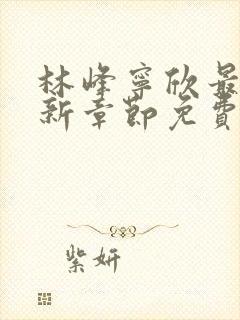 林峰寧欣最
新章節免費
紫妍